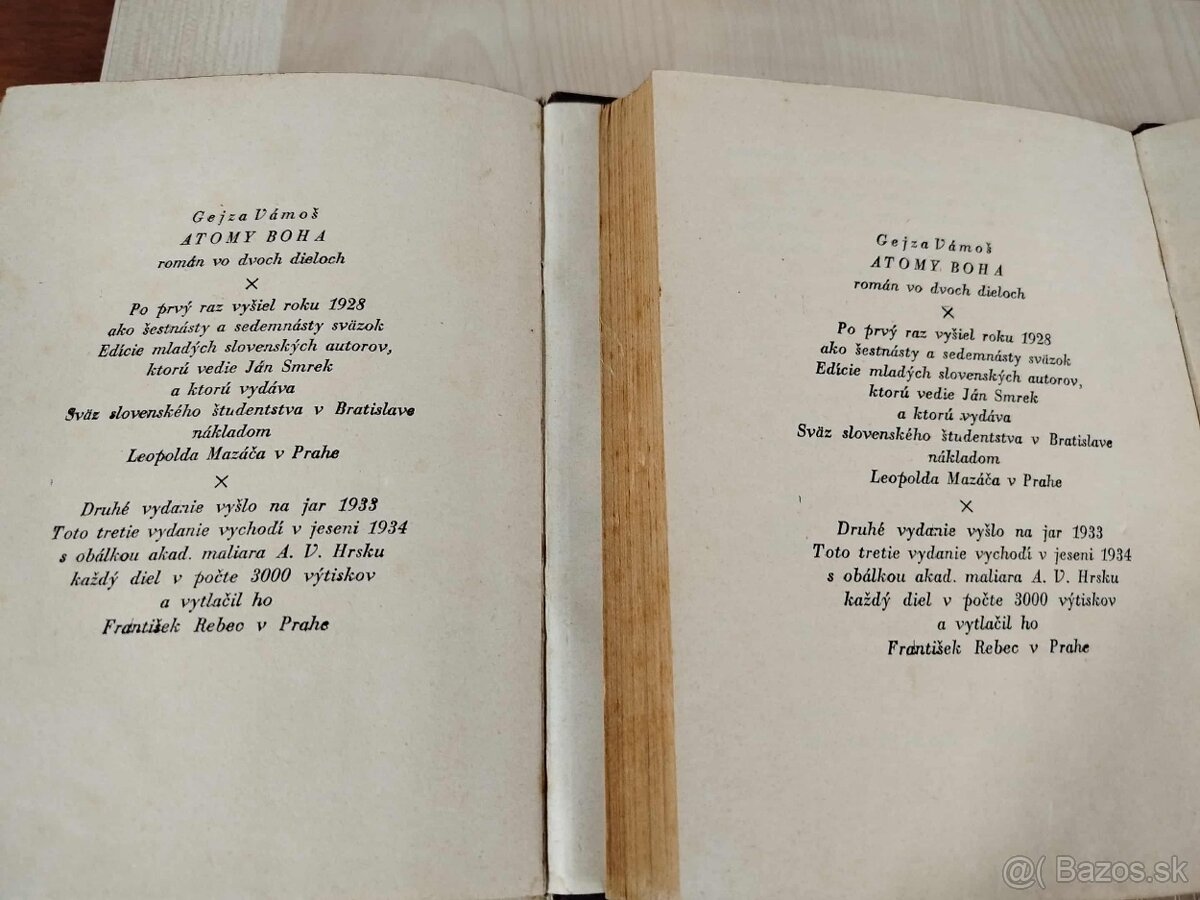 Gejza Vámoš
ATOMY BOHA
román vo dvoch dieloch
×
Po prvý raz vyšiel roku 1928
ako šestnásty a sedemnásty sväzok
Edície mladých slovenských autorov,
ktorú vedie Ján Smrek
a ktorú vydáva
Sväz slovenského študentstva v Bratislave
nákladom
Leopolda Mazáča v Prahe
×
Druhé vydanie vyšlo na jar 1933
Toto tretie vydanie vychodí v jeseni 1934
s obálkou akad. maliara A. V. Hrsku
každý diel v počte 3000 výtiskov
a vytlačil ho
František Rebec v Prahe
Gejza Vámoš
ATOMY BOHA
román vo dvoch dieloch
×
Po prvý raz vyšiel roku 1928
ako šestnásty a sedemnásty sväzok
Edície mladých slovenských autorov,
ktorú vedie Ján Smrek
a ktorú vydáva
Sväz slovenského študentstva v Bratislave
nákladom
Leopolda Mazáča v Prahe
×
Druhé vydanie vyšlo na jar 1933
Toto tretie vydanie vychodí v jeseni 1934
s obálkou akad. maliara A. V. Hrsku
každý diel v počte 3000 výtiskov
a vytlačil ho
František Rebec v Prahe
@( Bazos.sk